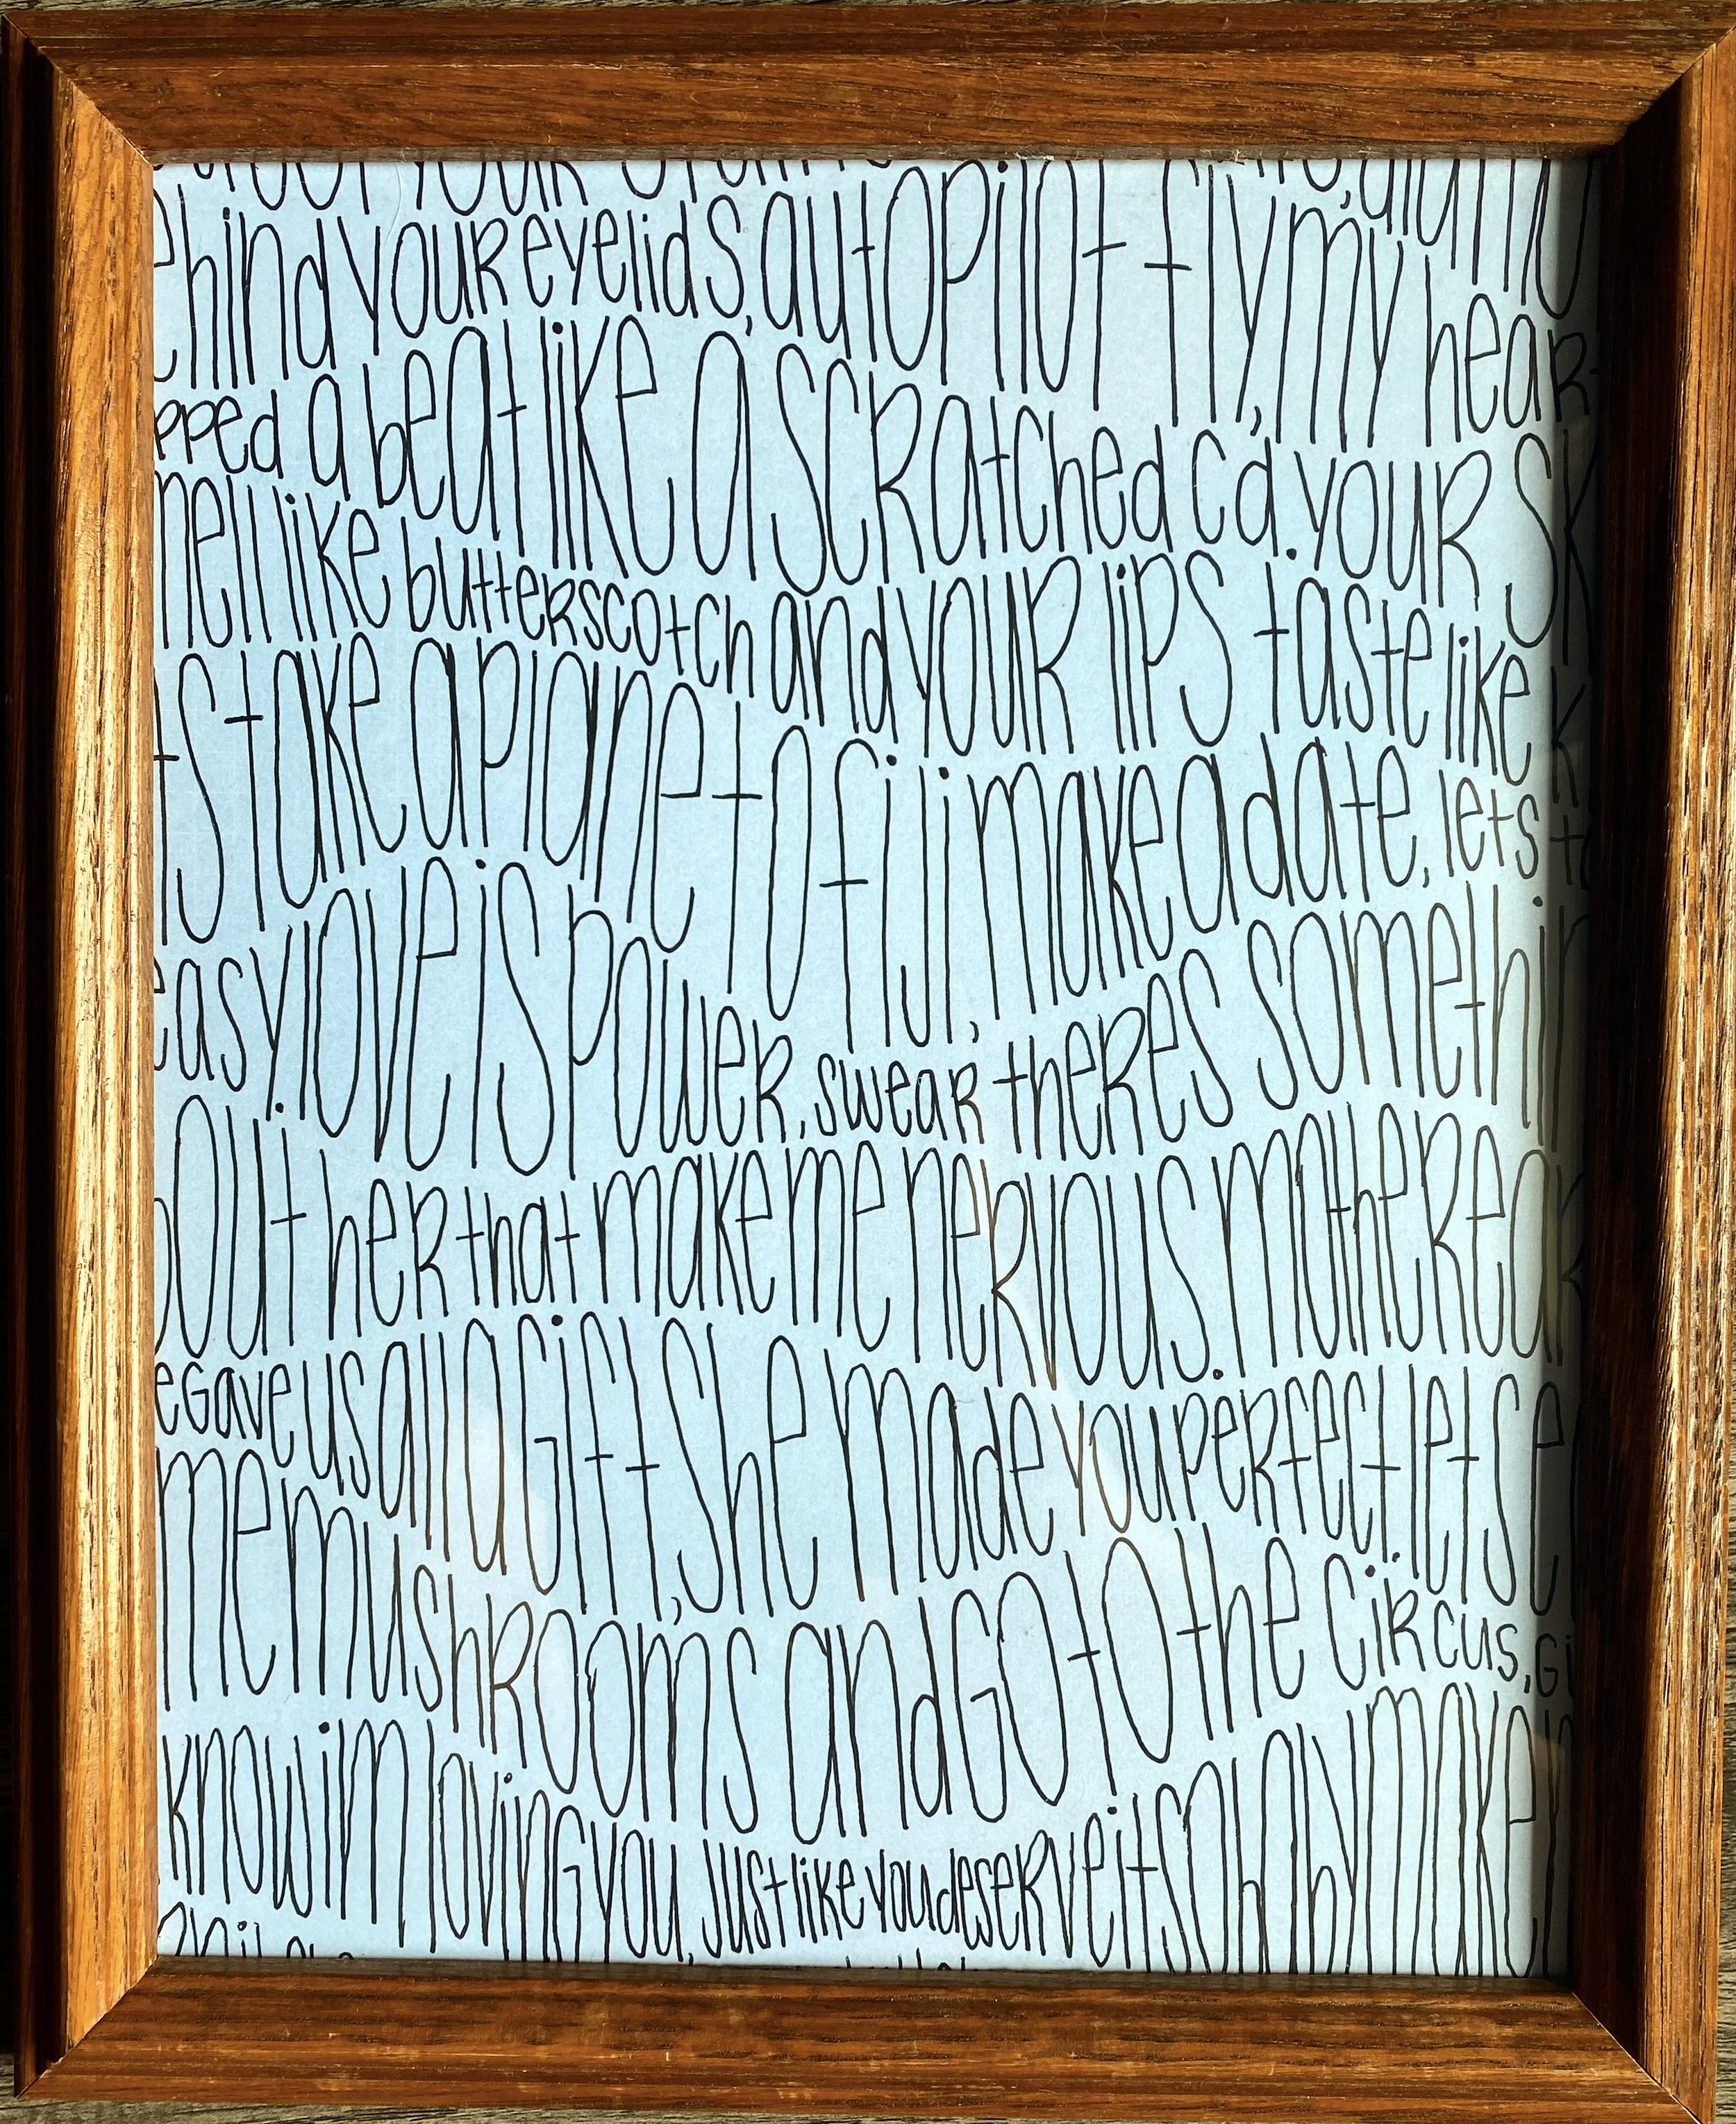 your
your eyelids, autopilot fly, my
a beat like a scratched cd. your
like butterscotch and your lips taste like
take a plane to fiji, make a date, lets
easy. love is power, swear theres
her that make me nervous. mother
gave us all a gift, she made you perfect. lets
me mushrooms and go to the circus,
know im loving you, just like you deserve it so baby make